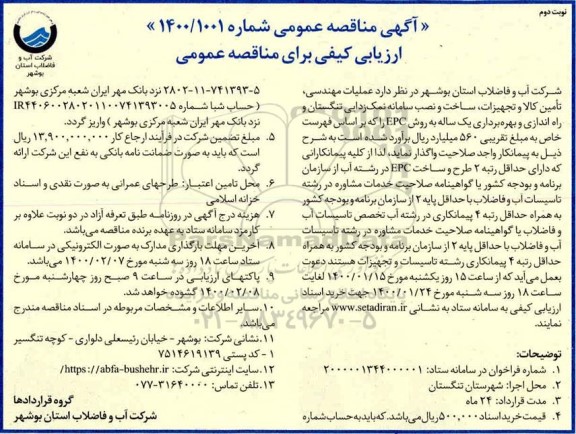 نوبت دوم
« آگهی مناقصه عمومی شماره ۱۴۰۰/۱۰۰۱ »
ارزیابی کیفی برای مناقصه عمومی
شرکت آب و
فاضلاب استان
بوشهر
شرکت آب و فاضلاب استان بوشهر در نظر دارد عملیات مهندسی،
تأمین کالا و تجهیزات، ساخت و نصب سامانه نمک‌زدایی تنگستان و
راه اندازی و بهره‌برداری یک ساله به روش EPC را که بر اساس فهرست
خاص به مبلغ تقریبی ۵۶۰ میلیارد ریال برآورد شده است به شرح
ذیل به پیمانکار واجد صلاحیت واگذار نماید، لذا از کلیه پیمانکارانی
که دارای حداقل رتبه ۲ طرح و ساخت EPC در رشته آب از سازمان
برنامه و بودجه کشور یا گواهینامه صلاحیت خدمات مشاوره در رشته
تاسیسات آب و فاضلاب با حداقل پایه ۲ از سازمان برنامه و بودجه کشور
به همراه حداقل رتبه ۴ پیمانکاری در رشته آب تخصص تاسیسات آب
و فاضلاب یا گواهینامه صلاحیت خدمات مشاوره در رشته تاسیسات
آب و فاضلاب با حداقل پایه ۲ از سازمان برنامه و بودجه کشور به همراه
حداقل رتبه ۴ پیمانکاری رشته تاسیسات و تجهیزات هستند دعوت
بعمل می‌آید که از ساعت ۱۵ روز یکشنبه مورخ ۱۴۰۰/۰۱/۱۵ لغایت
ساعت ۱۸ روز سه شنبه مورخ ۱۴۰۰/۰۱/۲۴ جهت خرید اسناد
ارزیابی کیفی به سامانه ستاد به نشانی www.setadiran.ir مراجعه
نمایند.
توضیحات:
۱. شماره فراخوان در سامانه ستاد: ۲۰۰۰۰۰۱۳۴۴۰۰۰۰۰۱
۲. محل اجرا: شهرستان تنگستان
۳. مدت قرارداد: ۲۴ ماه
۴. قیمت خرید اسناد ۵۰۰,۰۰۰ ریال می‌باشد، که باید به حساب شماره
۵-۷۴۱۳۹۳-۱۱-۲۸۰۲ نزد بانک مهر ایران شعبه مرکزی بوشهر
( حساب شبا شماره IR۴۴۰۶۰۰۲۸۰۲۰۱۱۰۰۷۴۱۳۹۳۰۰۵
نزد بانک مهر ایران شعبه مرکزی بوشهر ) واریز گردد.
۵. مبلغ تضمین شرکت در فرآیند ارجاع کار ۱۳,۹۰۰,۰۰۰,۰۰۰ ریال
است که باید به صورت ضمانت نامه بانکی به نفع این شرکت ارائه
گردد.
۶. محل تامین اعتبار: طرحهای عمرانی به صورت نقدی و اسناد
خزانه اسلامی
۷. هزینه درج آگهی در روزنامه طبق تعرفه آزاد در دو نوبت علاوه بر
کارمزد سامانه ستاد به عهده برنده مناقصه می‌باشد.
۸. آخرین مهلت بارگذاری مدارک به صورت الکترونیکی در سامانه
ستاد ساعت ۱۸ روز سه شنبه مورخ ۱۴۰۰/۰۲/۰۷ می‌باشد.
۹. پاکتهای ارزیابی در ساعت ۹ صبح روز چهارشنبه مورخ
۱۴۰۰/۰۲/۰۸ گشوده خواهد شد.
۱۰. سایر اطلاعات و مشخصات مربوطه در اسناد مناقصه مندرج
می‌باشد.
۱۱. نشانی شرکت: بوشهر - خیابان رئیسعلی دلواری - کوچه تنگسیر
۱ - کد پستی ۷۵۱۴۶۱۹۱۳۹
۱۲. سایت اینترنتی شرکت: https://abfa-bushehr.ir/
۱۳. تلفن تماس: ۳۱۶۴۰۰۰۰-۰۷۷
گروه قراردادها
شرکت آب و فاضلاب استان بوشهر
۰۲۱-۸۸۳۴۹۶۷۰-۵